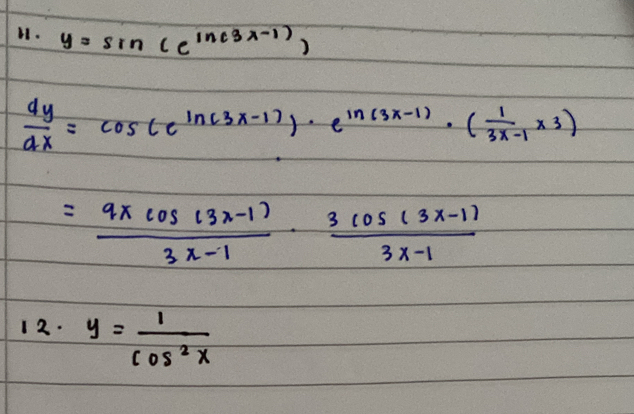 11. y = sin (e^ln(3x-1))
dy/dx = cos(e^ln(3x-1)) · e^ln(3x-1) · (1/(3x-1) × 3)
= 9x cos (3x-1)/(3x-1) · 3 cos (3x-1)/(3x-1)
12. y = 1/cos²x